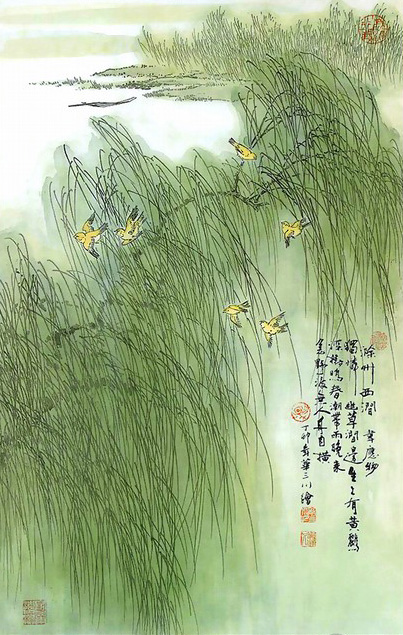 滁州西澗 韋應物
獨憐幽草澗邊生上有黃鸝
深樹鳴春潮帶雨晚來
急野渡無人舟自横
丁卯春華三川繪